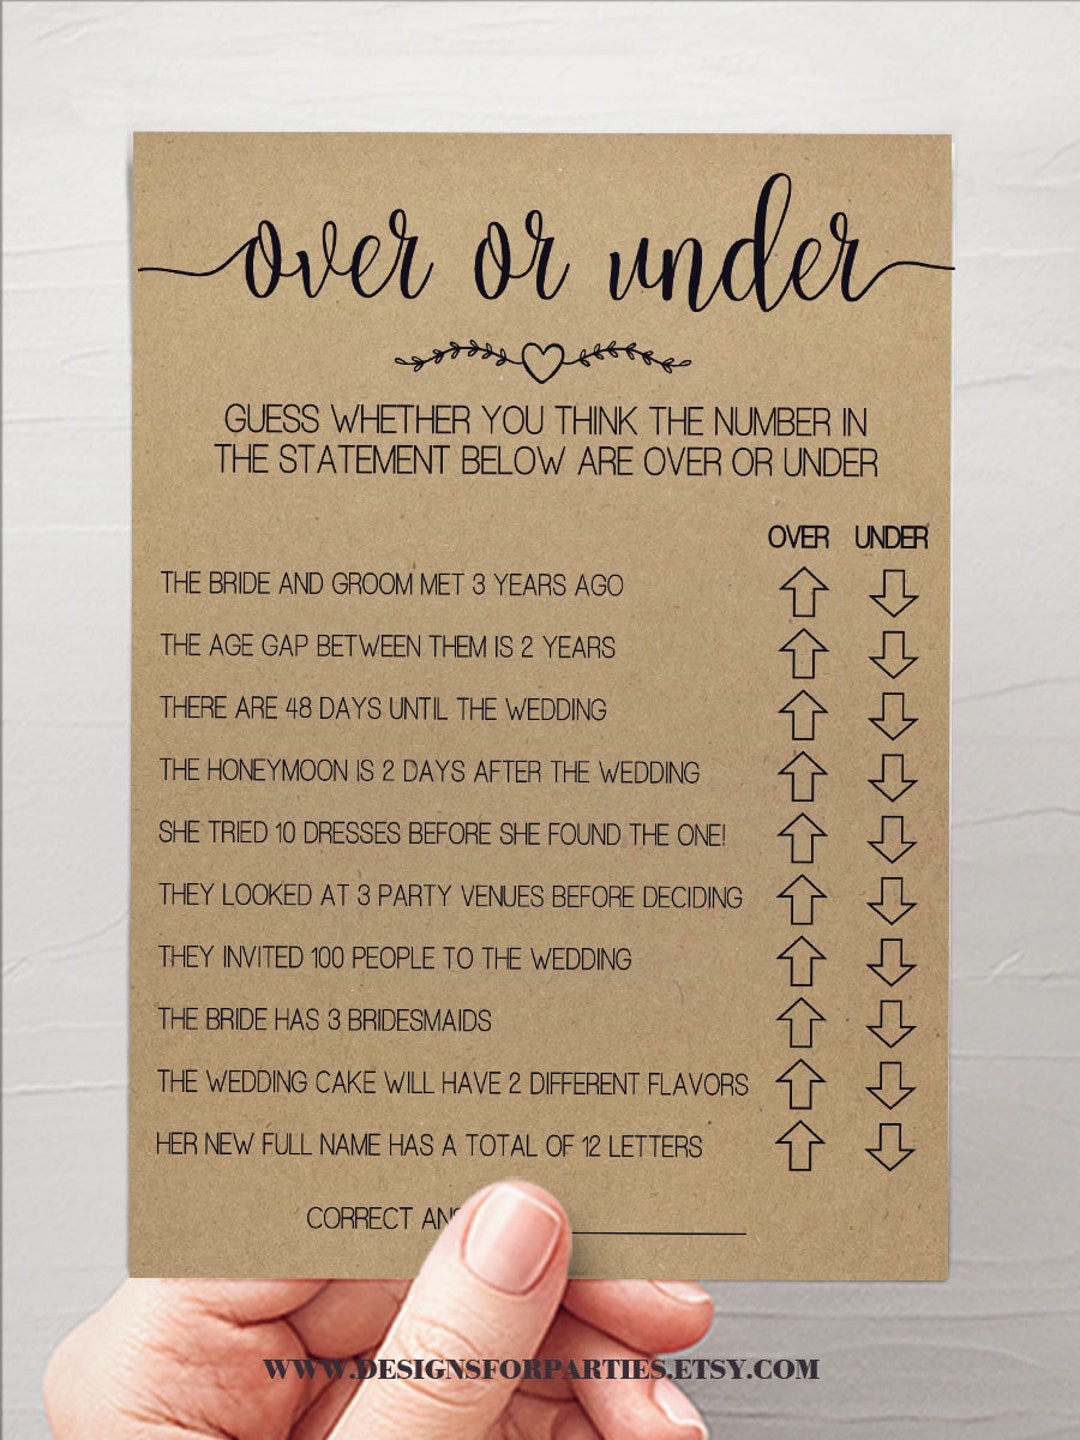 over or under
GUESS WHETHER YOU THINK THE NUMBER IN
THE STATEMENT BELOW ARE OVER OR UNDER
OVER UNDER
THE BRIDE AND GROOM MET 3 YEARS AGO
THE AGE GAP BETWEEN THEM IS 2 YEARS
THERE ARE 48 DAYS UNTIL THE WEDDING
THE HONEYMOON IS 2 DAYS AFTER THE WEDDING
SHE TRIED 10 DRESSES BEFORE SHE FOUND THE ONE!
THEY LOOKED AT 3 PARTY VENUES BEFORE DECIDING
THEY INVITED 100 PEOPLE TO THE WEDDING
THE BRIDE HAS 3 BRIDESMAIDS
THE WEDDING CAKE WILL HAVE 2 DIFFERENT FLAVORS
HER NEW FULL NAME HAS A TOTAL OF 12 LETTERS
CORRECT
WWW.DESIGNSFORPARTIES.ETSY.COM